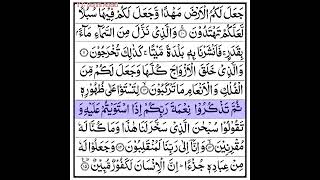 جَعَلَ لَكُمُ الْاَرْضَ مَهْدًا وَّجَعَلَ لَكُمْ فِيْهَا سُبُلًا
لَّعَلَّكُمْ تَهْتَدُوْنَ ۝ وَالَّذِيْ نَزَّلَ مِنَ السَّمَآءِ مَآءًۢ
بِقَدَرٍ ۚ فَاَنْشَرْنَا بِهٖ بَلْدَةً مَّيْتًا ۚ كَذٰلِكَ تُخْرَجُوْنَ ۝
وَالَّذِيْ خَلَقَ الْاَزْوَاجَ كُلَّهَا وَجَعَلَ لَكُمْ مِّنَ
الْفُلْكِ وَالْاَنْعَامِ مَا تَرْكَبُوْنَ ۝ لِتَسْتَوٗا عَلٰى ظُهُوْرِهٖ
ثُمَّ تَذْكُرُوْا نِعْمَةَ رَبِّكُمْ اِذَا اسْتَوَيْتُمْ عَلَيْهِ وَ
تَقُوْلُوْا سُبْحٰنَ الَّذِيْ سَخَّرَ لَنَا هٰذَا وَمَا كُنَّا لَهٗ
مُقْرِنِيْنَ ۝ وَاِنَّآ اِلٰى رَبِّنَا لَمُنْقَلِبُوْنَ ۝ وَجَعَلُوْا لَهٗ
مِنْ عِبَادِهٖ جُزْءًا ؕ اِنَّ الْاِنْسَانَ لَكَفُوْرٌ مُّبِيْنٌ ۝